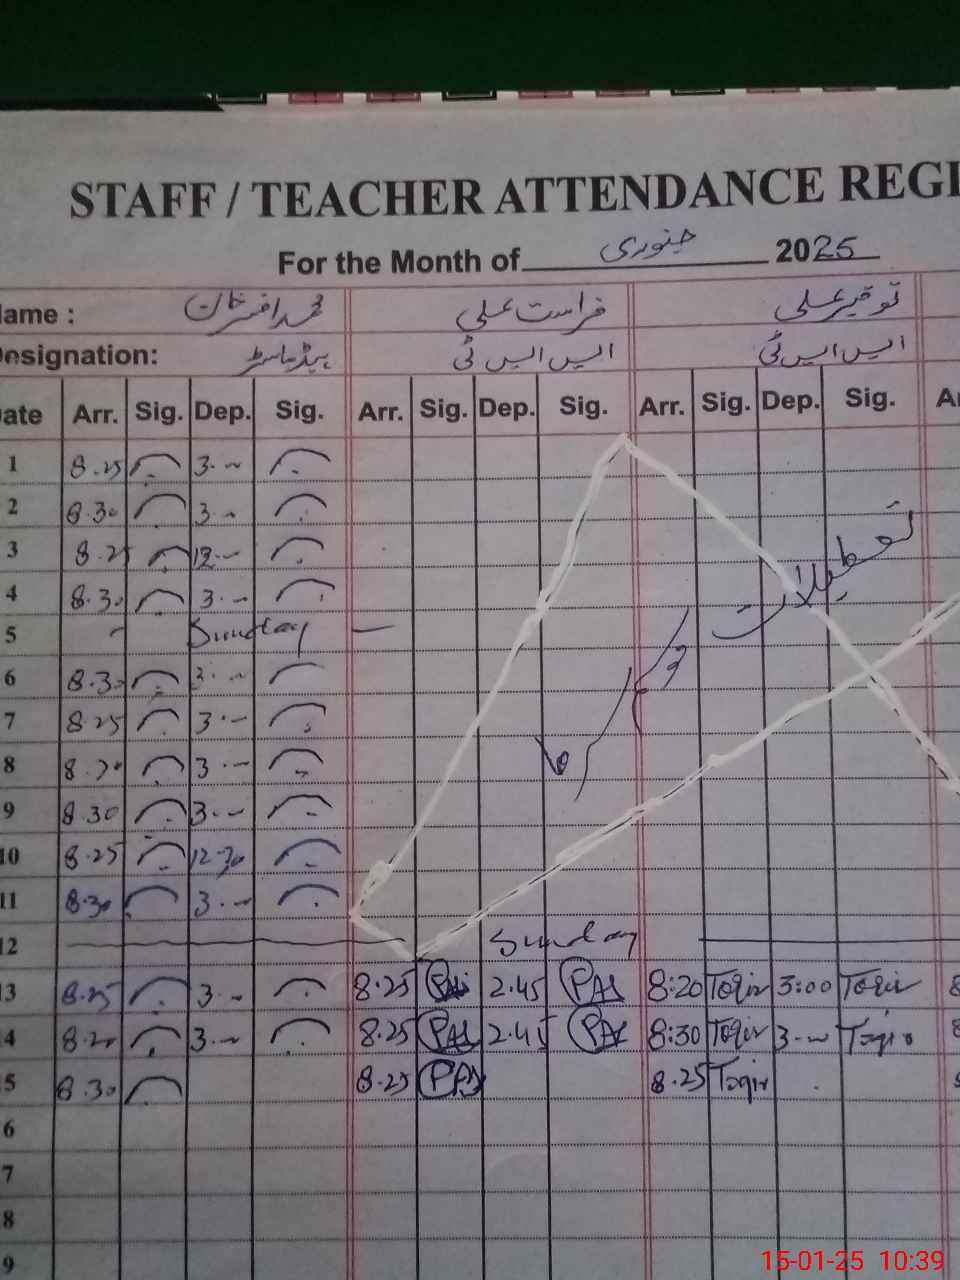 STAFF / TEACHER ATTENDANCE REGI
For the Month of جنوری 2025
ame : محمد افسر خان فراست علی توقیر علی
esignation: ہیڈ ماسٹر ایس ایس ٹی ایس ایس ٹی
ate Arr. Sig. Dep. Sig. Arr. Sig. Dep. Sig. Arr. Sig. Dep. Sig. A
1 8.25 3.
2 8.30 3.
3 8.25 12. تعطیلات
4 8.30 3.
5 Sunday
6 8.30 3.
7 8.25 3.
8 3.
9 8.30 3.
10 8.25 12.30
11 8.30 3.
12 Sunday
13 8.25 3. 8.25 2.45 8:20 Toqir 3:00 Toqir 8
4 3. 8.25 2.45 8:30 Toqir 3. Toqir 8
5 8.30 8.25 8.25 Toqir
6
7
8
9
15-01-25 10:39